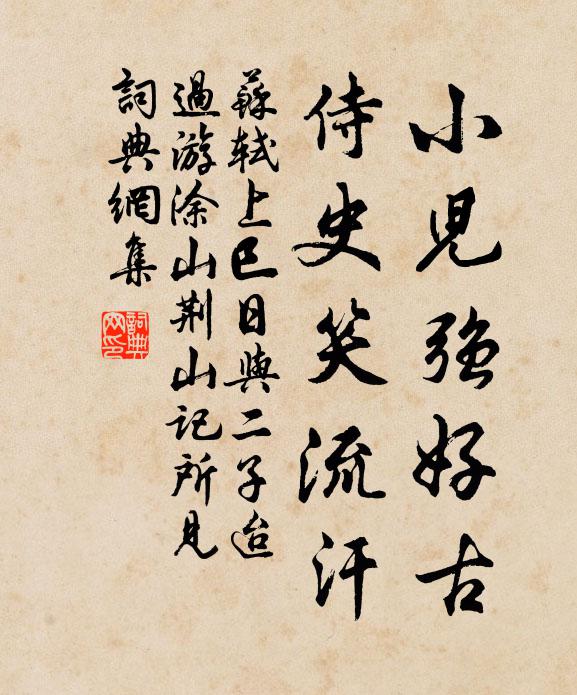 小児強好古
侍史笑流汗
蘇軾上巳日與二子迨
過游涂山荆山記所見
詞典網集
詞典
网印